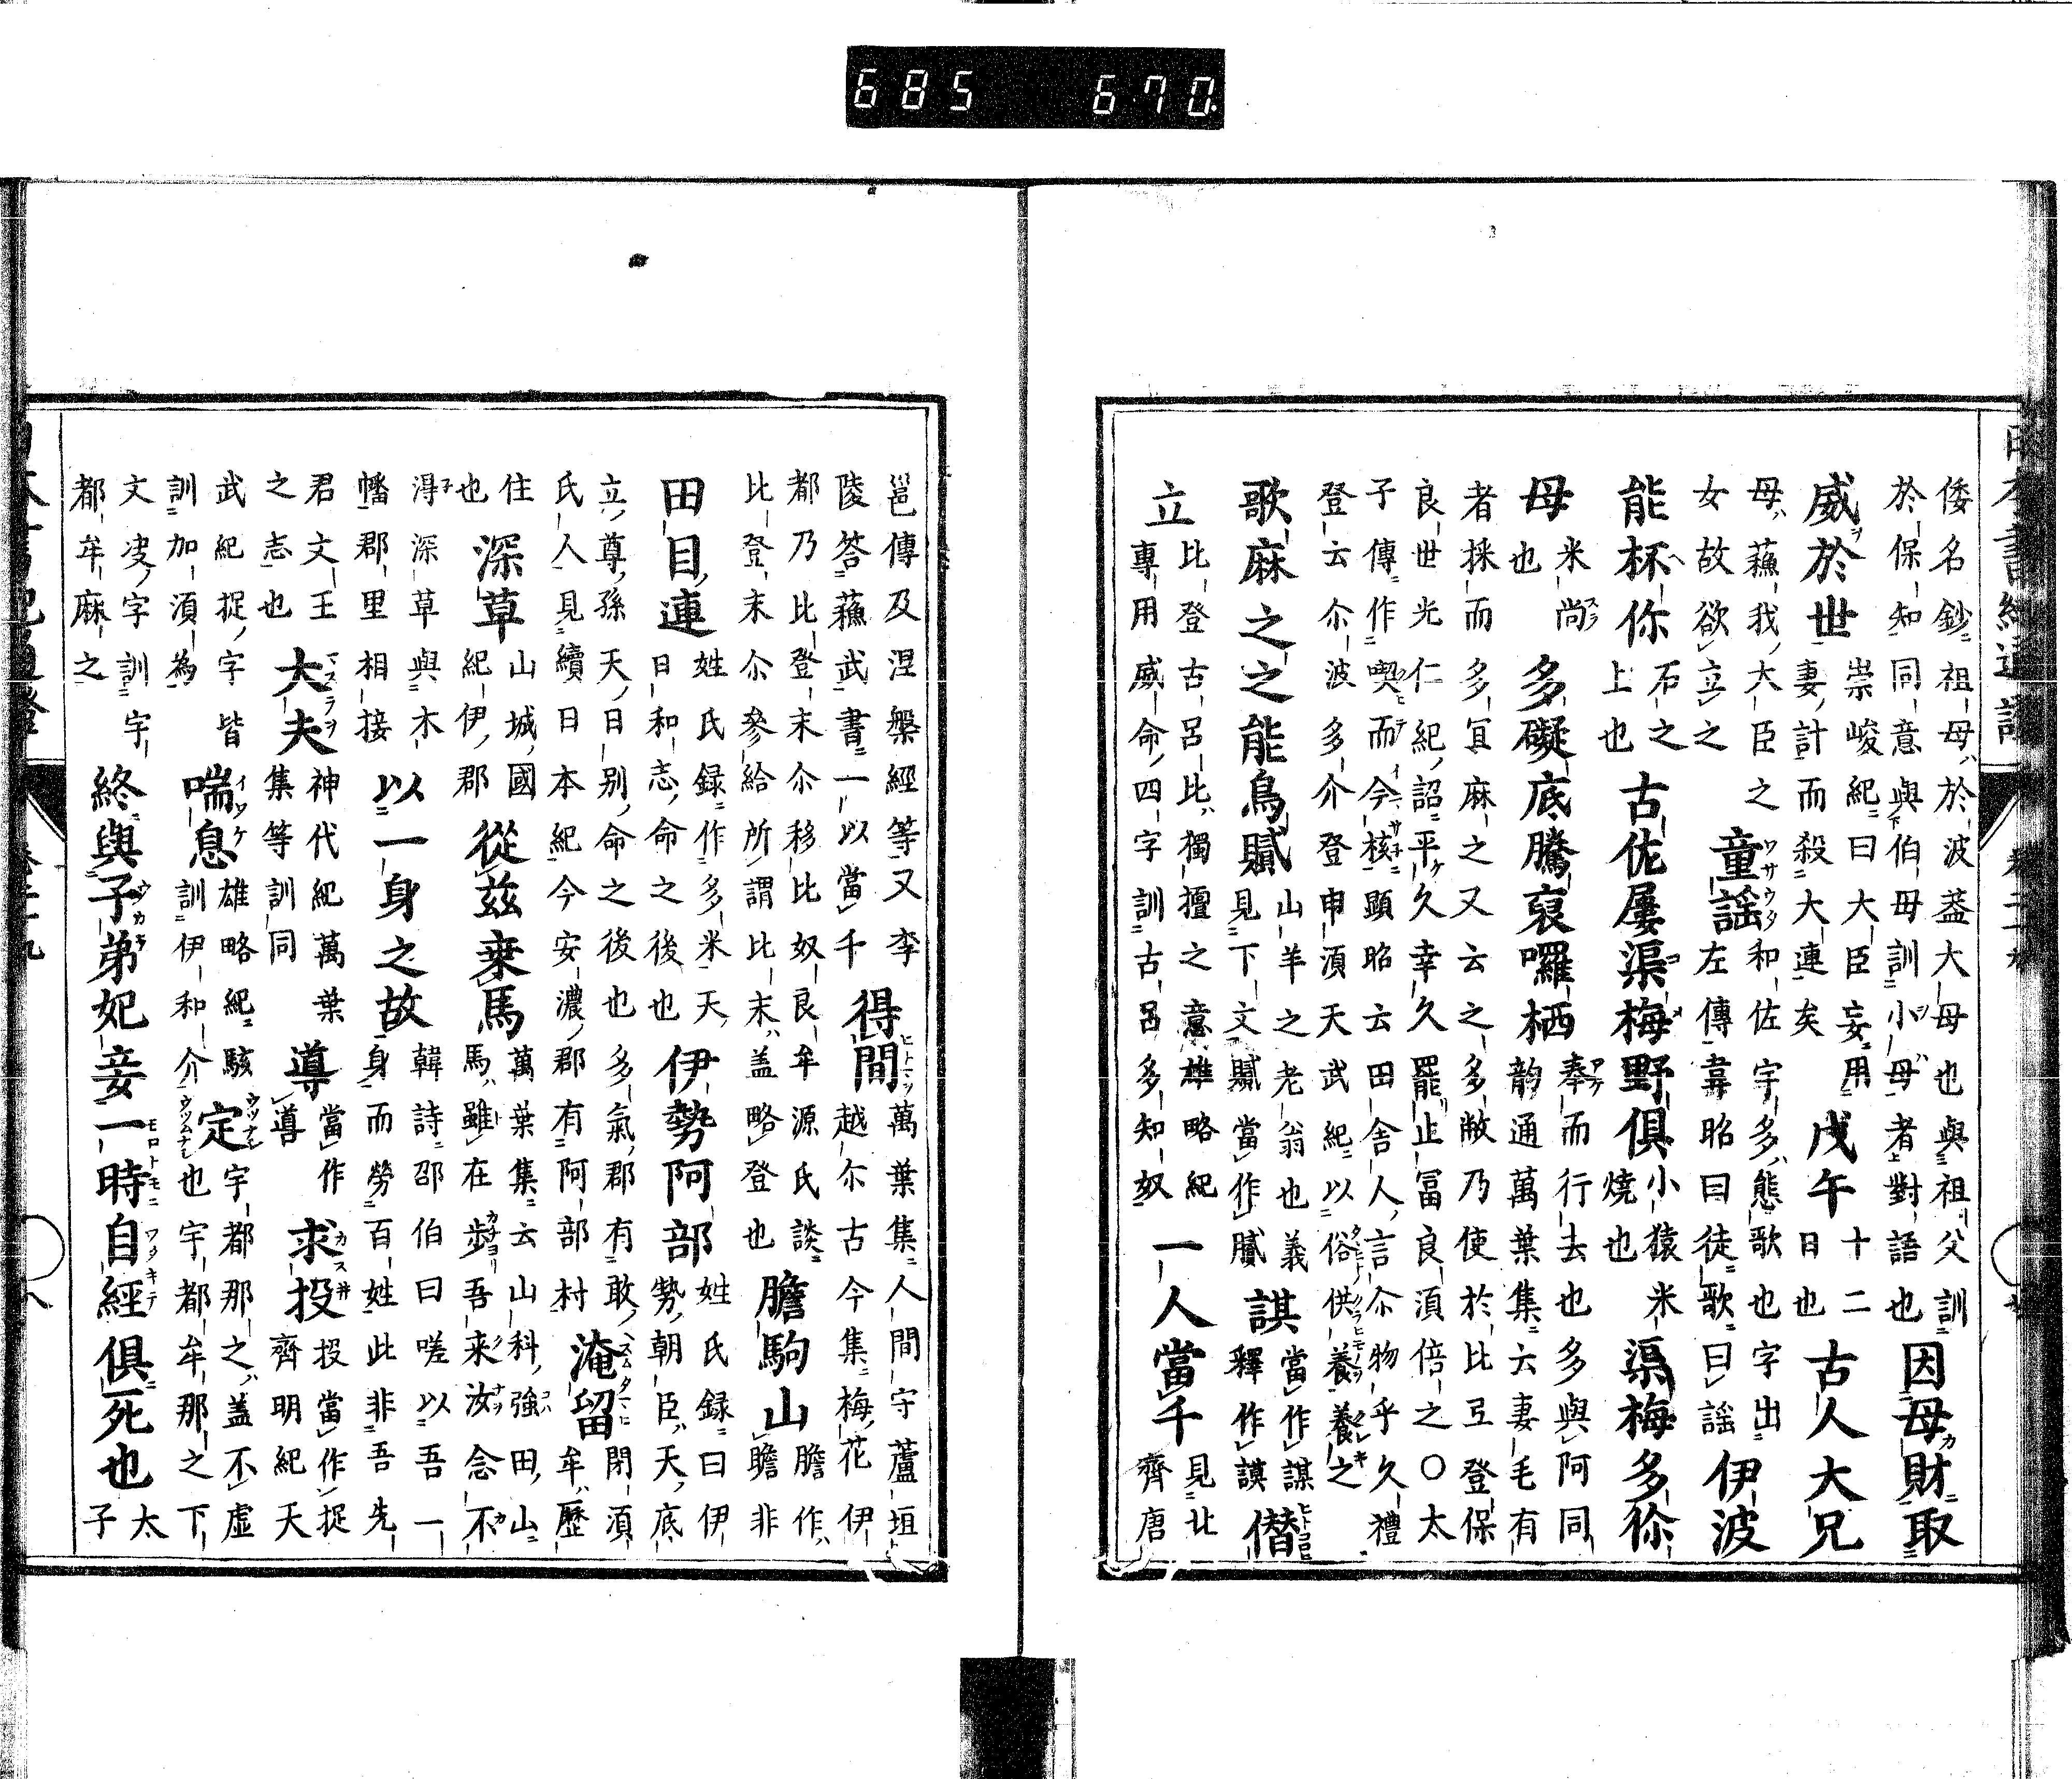 685 670
倭名鈔祖母於波蓋大母也與祖父訓
於保知同意與伯母訓小母者對語也 因母財取
威於世 崇峻紀曰大臣妄用
妻計而殺大連矣 戊午 十二
日也 古人大兄
母蘓我大臣之
女故欲立之 童謠 和佐宇多態歌也字出
左傳韋昭曰徒歌曰謠 伊波
能杯你 石之
上也 古佐屢渠梅野俱 小猿米
燒也 渠梅多你
母 米尚
也 多礙底騰裒囉栖 奉而行去也多與阿同
韵通萬葉集六妻毛有
者採而多冝麻之又云之多敝乃使於比弖登保
良世光仁紀詔平久幸久罷止冨良須倍之〇太
子傳作喫而今核顕昭云田舎人言尒物乎久禮
登云尒波多介登申須天武紀以俗供養養之
歌麻之之能烏膩 山羊之老翁也義
見下文膩當作膩 諆 當作謀
釋作謨 僣
立 比登古呂比獨擅之意雄略紀
專用威命四字訓古呂多知奴 一人當千 見北
齊唐
邕傳及涅槃經等又李
陵答蘓武書一以當千 得間 萬葉集人間守蘆垣
越尒古今集梅花伊
都乃比登末尒移比奴良牟源氏談
比登末尒參給所謂比末蓋略登也 膽駒山 膽作
瞻非
田目連 姓氏録作多米天
日和志命之後也 伊勢阿部 姓氏録曰伊
勢朝臣天底
立尊孫天日别命之後也多氣郡有敢
氏人見續日本紀今安濃郡有阿部村 淹留 閇須
牟歷
住
也 深草 山城國
紀伊郡 從兹乗馬 萬葉集云山科強田山
馬雖在步吾来汝念不
淂深草與木
幡郡里相接 以一身之故 韓詩邵伯曰嗟以吾一
身而勞百姓此非吾先
君文王
之志也 大夫 神代紀萬葉
集等訓同 導 當作
導 求投 投當作捉
齊明紀天
武紀捉字皆
訓加須為 喘息 雄略紀駭
訓伊和介 定 宇都那之蓋不虛
也宇都牟那之下
文㕙字訓宇
都牟麻之 終與子弟妃妾一時自經俱死也 太
子